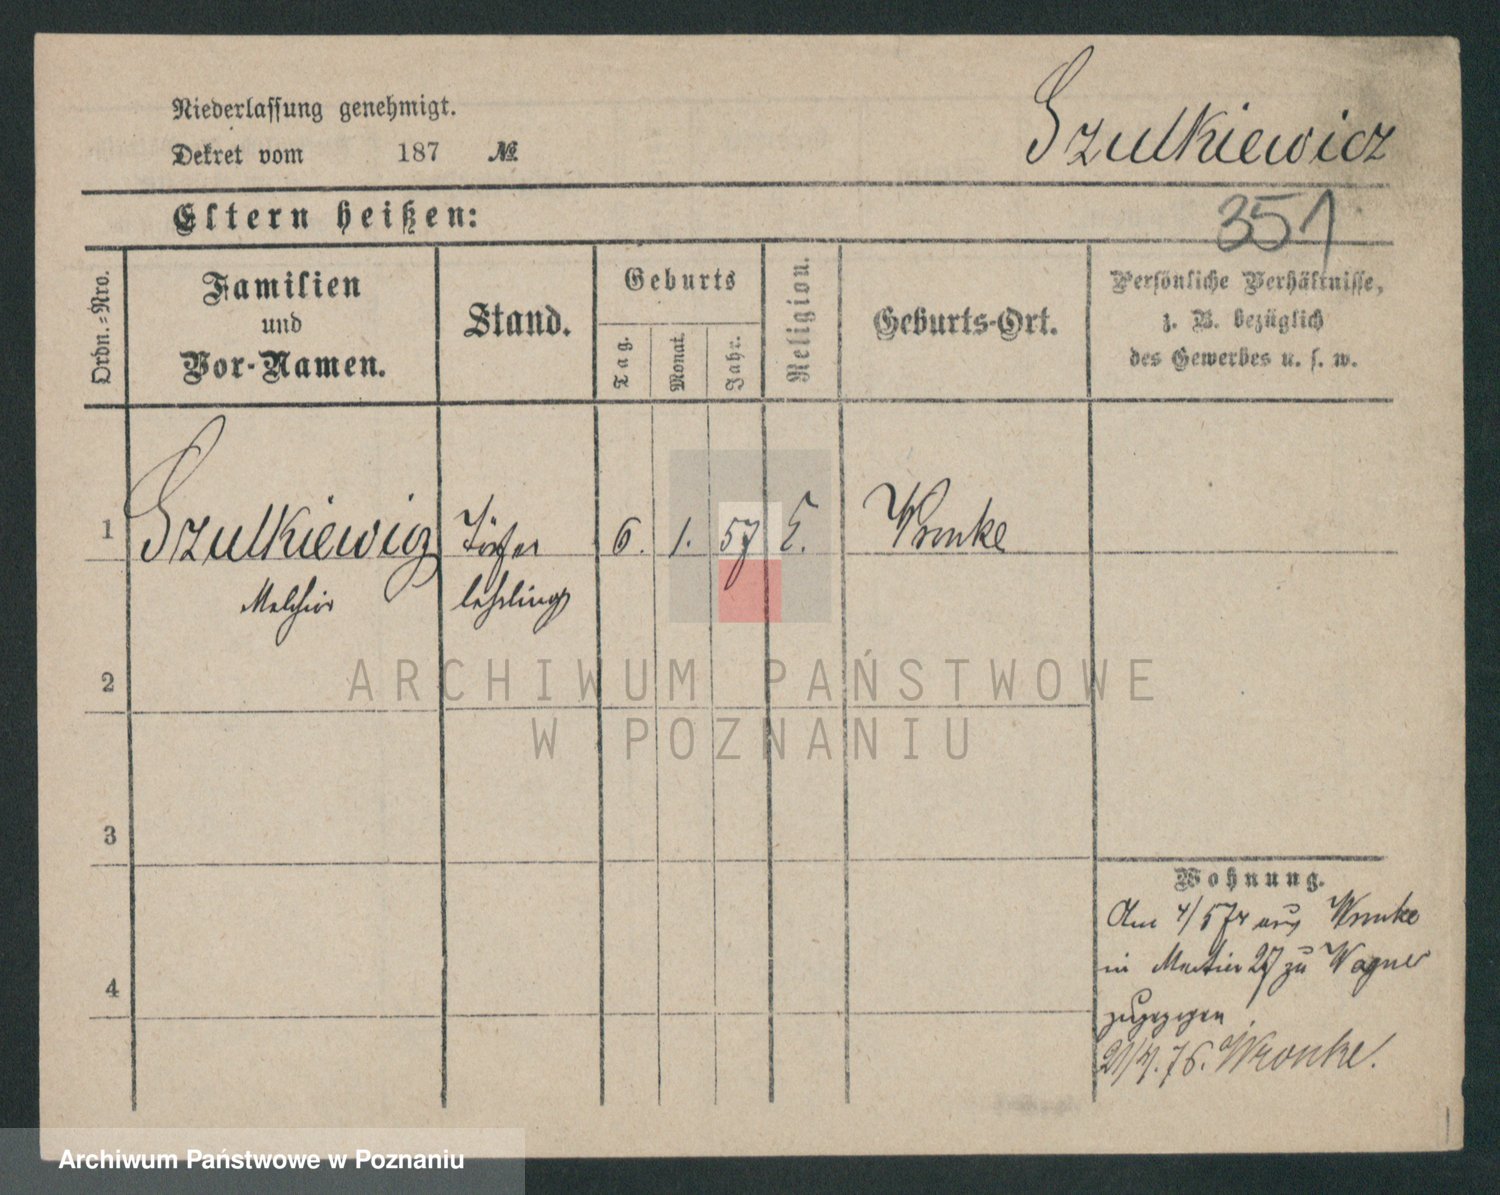 Niederlassung genehmigt.
Dekret vom 187 №
Szulkiewicz
Eltern heißen:
351
Ordn.-Nro.
Familien
und
Vor-Namen.
Stand.
Geburts
Tag.
Monat.
Jahr.
Religion.
Geburts-Ort.
Persönliche Verhältnisse,
z. B. bezüglich
des Gewerbes u. s. w.
1 Szulkiewicz Töpfer 6. 1. 57 Wronke
Melchior lehrling
2
3
4
Wohnung.
Am 4/5 74 aus Wronke
in Martin 27 zu Wagner
zugezogen
21/4. 76. Wronke.
ARCHIWUM PAŃSTWOWE
W POZNANIU
Archiwum Państwowe w Poznaniu